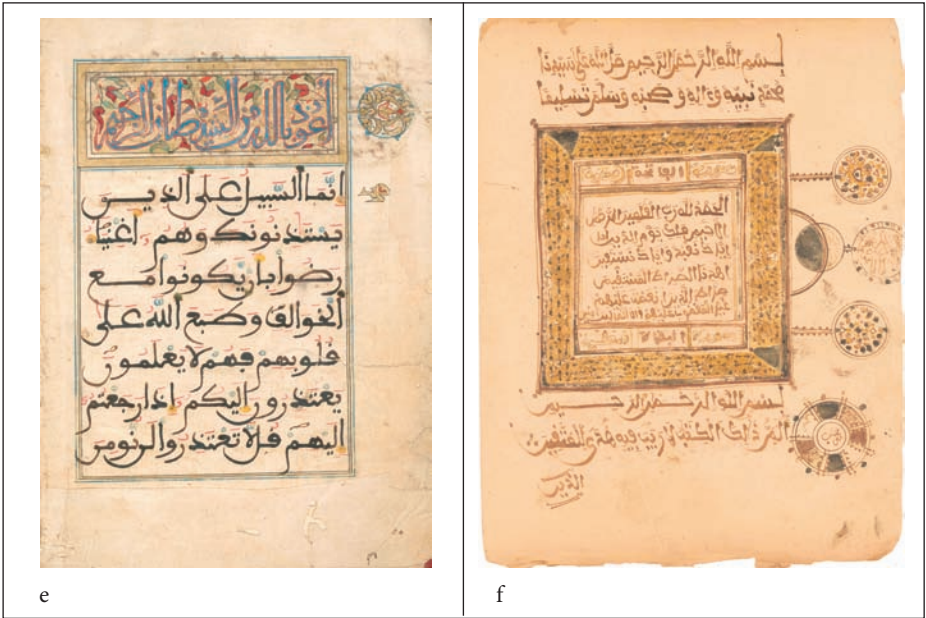 اعوذ بالله من الشيطان الرجيم
إنما السبيل على الذين
يستذنونك وهم أغنيا
رضوا بان يكونوا مع
الخوالف وطبع الله على
قلوبهم فهم لا يعلمون
يعتذرون إليكم إذا رجعتم
إليهم قل لا تعتذروا لن نومن
e
بسم الله الرحمن الرحيم صل الله على سيدنا
محمد نبيه وءاله وصحبه وسلم تسليما
الفاتحة
الحمد لله رب العلمين الرحمن
الرحيم ملك يوم الدين
إياك نعبد وإياك نستعين
اهدنا الصراط المستقيم
صراط الذين أنعمت عليهم
غير المغضوب عليهم ولا الضالين
بسم الله الرحمن الرحيم
الم ذلك الكتب لا ريب فيه هدى للمتقين
الذين
f